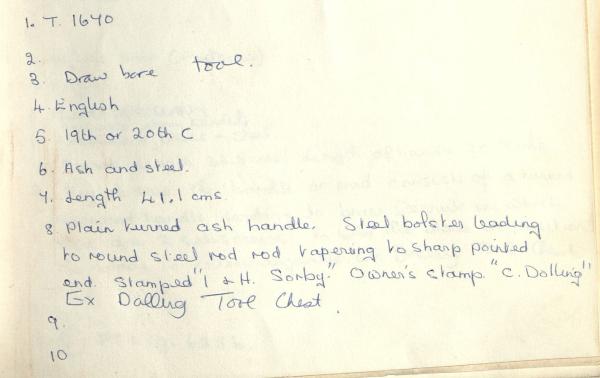 1. T. 1640
2.
3. Draw bore tool.
4. English
5. 19th or 20th C
6. Ash and steel.
7. Length 41,1 cms.
8. Plain turned ash handle. Steel bolster leading
to round steel rod rod tapering to sharp pointed
end. Stamped "I & H. Sorby." Owner's stamp. "C. Dolling"
Ex Dalling Tool Chest.
9.
10